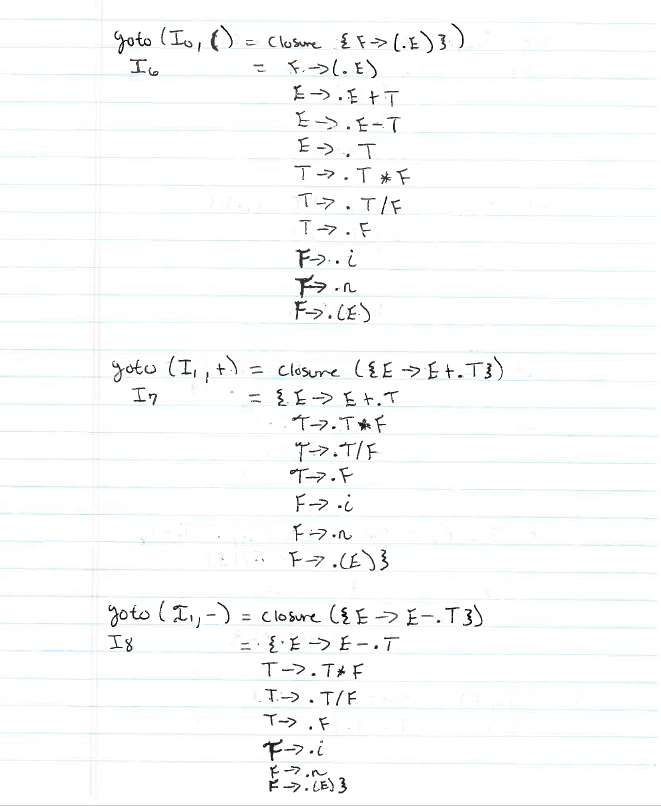 goto (I0, () = closure {F→(.E)})
I6 = F→(.E)
E→.E+T
E→.E-T
E→.T
T→.T*F
T→.T/F
T→.F
F→.i
F→.n
F→.(E)
goto (I1,+) = closure ({E→E+.T})
I7 = {E→E+.T
T→.T*F
T→.T/F
T→.F
F→.i
F→.n
F→.(E)}
goto (I1,-) = closure ({E→E-.T})
I8 = {E→E-.T
T→.T*F
T→.T/F
T→.F
F→.i
F→.n
F→.(E)}